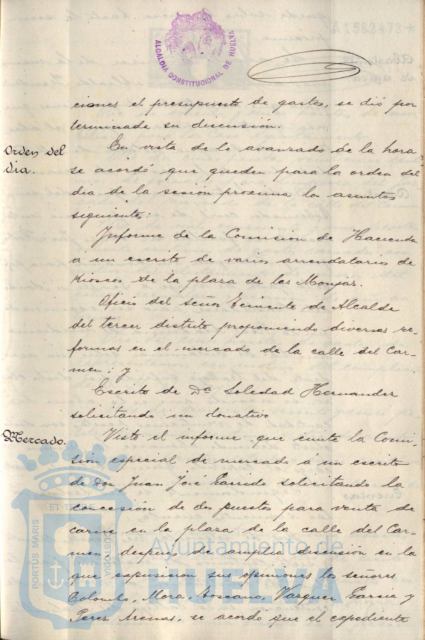 ALCALDIA CONSTITUCIONAL DE HUELVA
ciones el presupuesto de gastos, se dió por
terminada su discusión.
Orden del
dia.
En vista de lo avanzado de la hora
se acordó que queden para la orden del
dia de la sesión próxima los asuntos
siguiente:
Informe de la Comisión de Hacienda
a un escrito de varios arrendatarios de
Kioscos de la plaza de las Monjas.
Oficio del señor Teniente de Alcalde
del tercer distrito proponiendo diversas re-
formas en el mercado de la calle del Car-
men; y
Escrito de Dª Soledad Hernandez
solicitando un donativo
Mercado.
Visto el informe que emite la Comi-
sión especial de mercado á un escrito
de don Juan José solicitando la
concesión de dos puestos para venta de
carne en la plaza de la calle del Car-
men, después de amplia discusión en la
que expusieron sus opiniones los señores
Colombo, Mora, Vazquez Garcia y
Perez Arenas, se acordó que el expediente
PORTUS MARIS
Ayuntamiento de
HUELVA